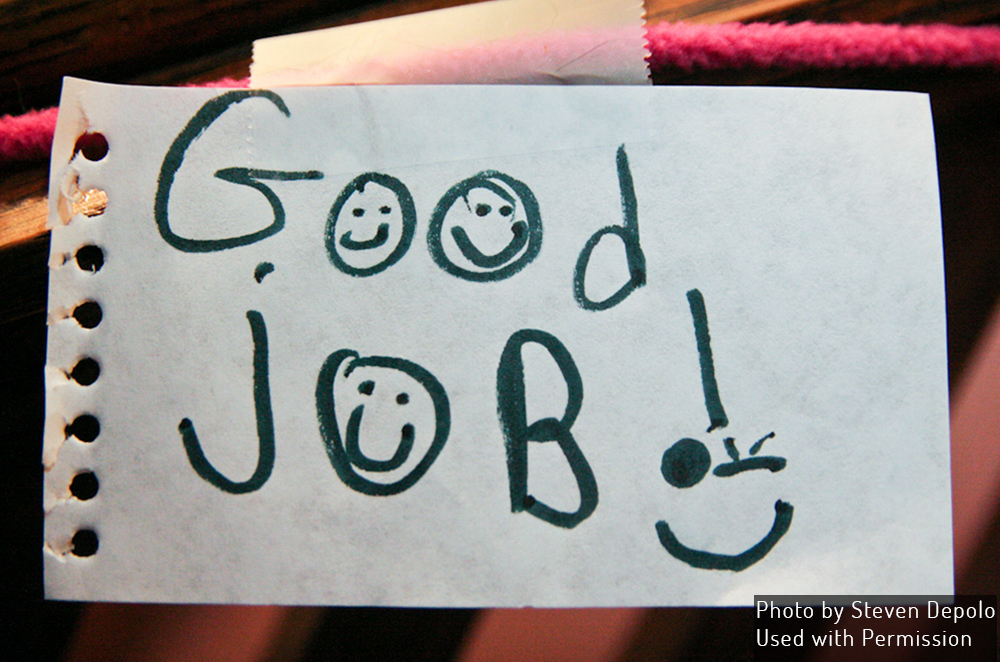 Good
jOB!
Photo by Steven Depolo
Used with Permission